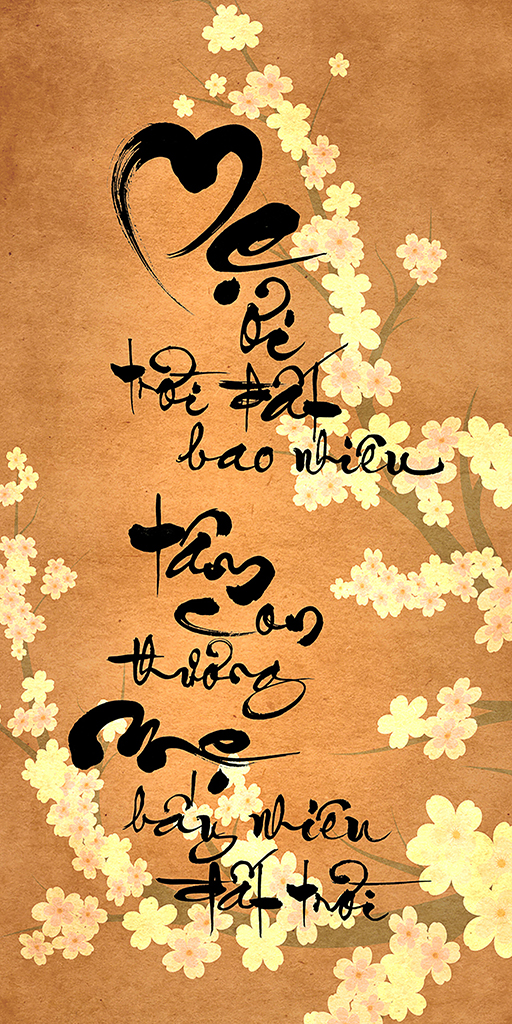 Mẹ
ơi
trời đất
bao nhiêu
tâm
con
thương
Mẹ
bấy nhiêu
đất trời